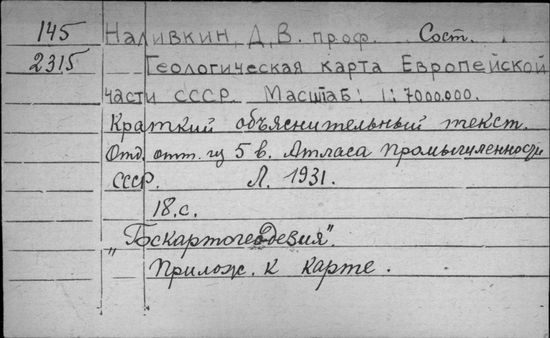 145 Наливкин, Д.В. проф. Сост.
2315 Геологическая карта Европейской
части СССР. Масштаб: 1:7000.000.
Краткий объяснительный текст.
Отд. отт. из 5 в. Атласа Промышленности
СССР. Л. 1931.
18.с.
„Госкартогеодезия".
Прилож. к карте.